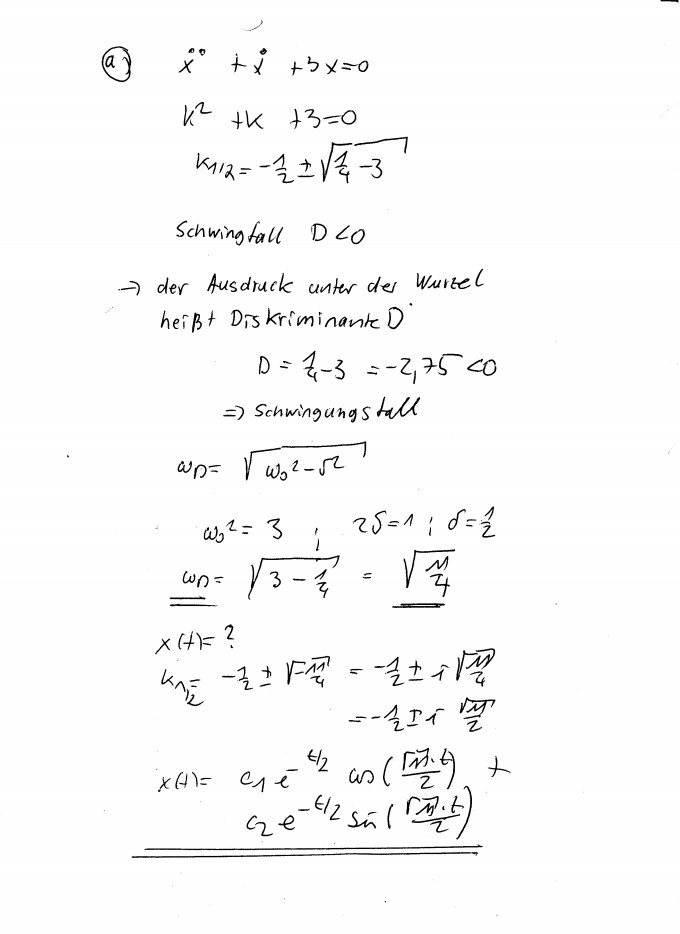 a) ẍ + ẋ + 3x=0
k² + k + 3=0
k1/2 = -1/2 ± √(1/4 - 3)
Schwingfall D<0
→ der Ausdruck unter der Wurzel
heißt Diskriminante D
D = 1/4 - 3 = -2,75 <0
=> Schwingungsfall
ωD = √(ω0² - δ²)
ω0² = 3 ; 2δ=1 ; δ=1/2
ωD = √(3 - 1/4) = √(11/4)
x(t)= ?
k1/2 = -1/2 ± √(-11/4) = -1/2 ± i √(11/4)
= -1/2 ± i √11/2
x(t)= c1 e^(-t/2) cos(√11·t/2) +
c2 e^(-t/2) sin(√11·t/2)